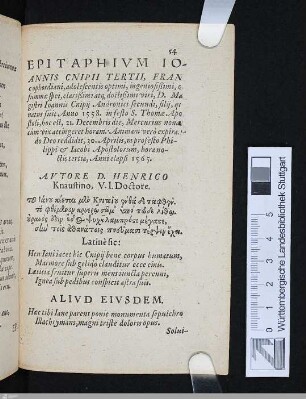 54
EPITAPHIVM IO-
ANNIS CNIPII TERTII, FRAN
cophordiani, adolescentis optimi, ingeniosissimi, &
summæ spei, clarissimi atq; doctissimi viri, D. Ma
gistri Ioannis Cnipij Andronici secundi, filij, qui
natus fuit Anno 1558. in festo S. Thomæ Apo
stoli, hoc est, 21. Decembris die, Mercurius nonam
cum vix attingeret horam. Animam verò expiran-
do Deo reddidit, 30. Aprilis, in profesto Phi-
lippi & Iacobi Apostolorum, hora no-
ctis tertia, Anni elapsi 1565.
AVTORE D. HENRICO
Knaustino, V. I. Doctore.
Latinè sic:
Hen Iani iacet hic Cnipij bene corpus humatum,
Marmore sub gelido clauditur ecce cinis.
Lætitia fruitur superis mens iuncta perenni,
Ignea sub pedibus conspicit astra suis.
ALIVD EIVSDEM.
Hæc tibi Iane parent ponit monumenta sepulchro
Illachrymans, magni triste doloris opus.
Solui-
Württembergische Landesbibliothek Stuttgart